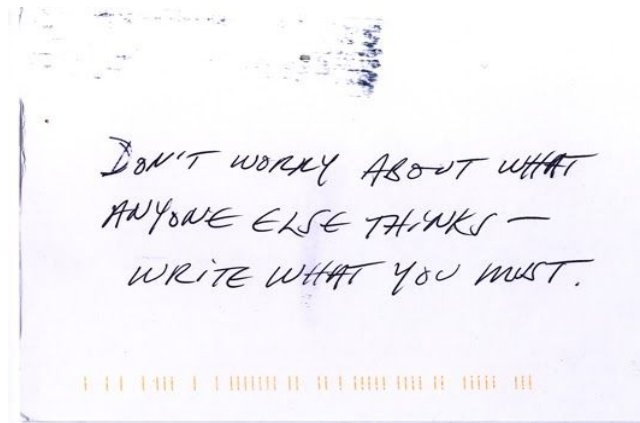 DON'T WORRY ABOUT WHAT
ANYONE ELSE THINKS —
WRITE WHAT YOU MUST.